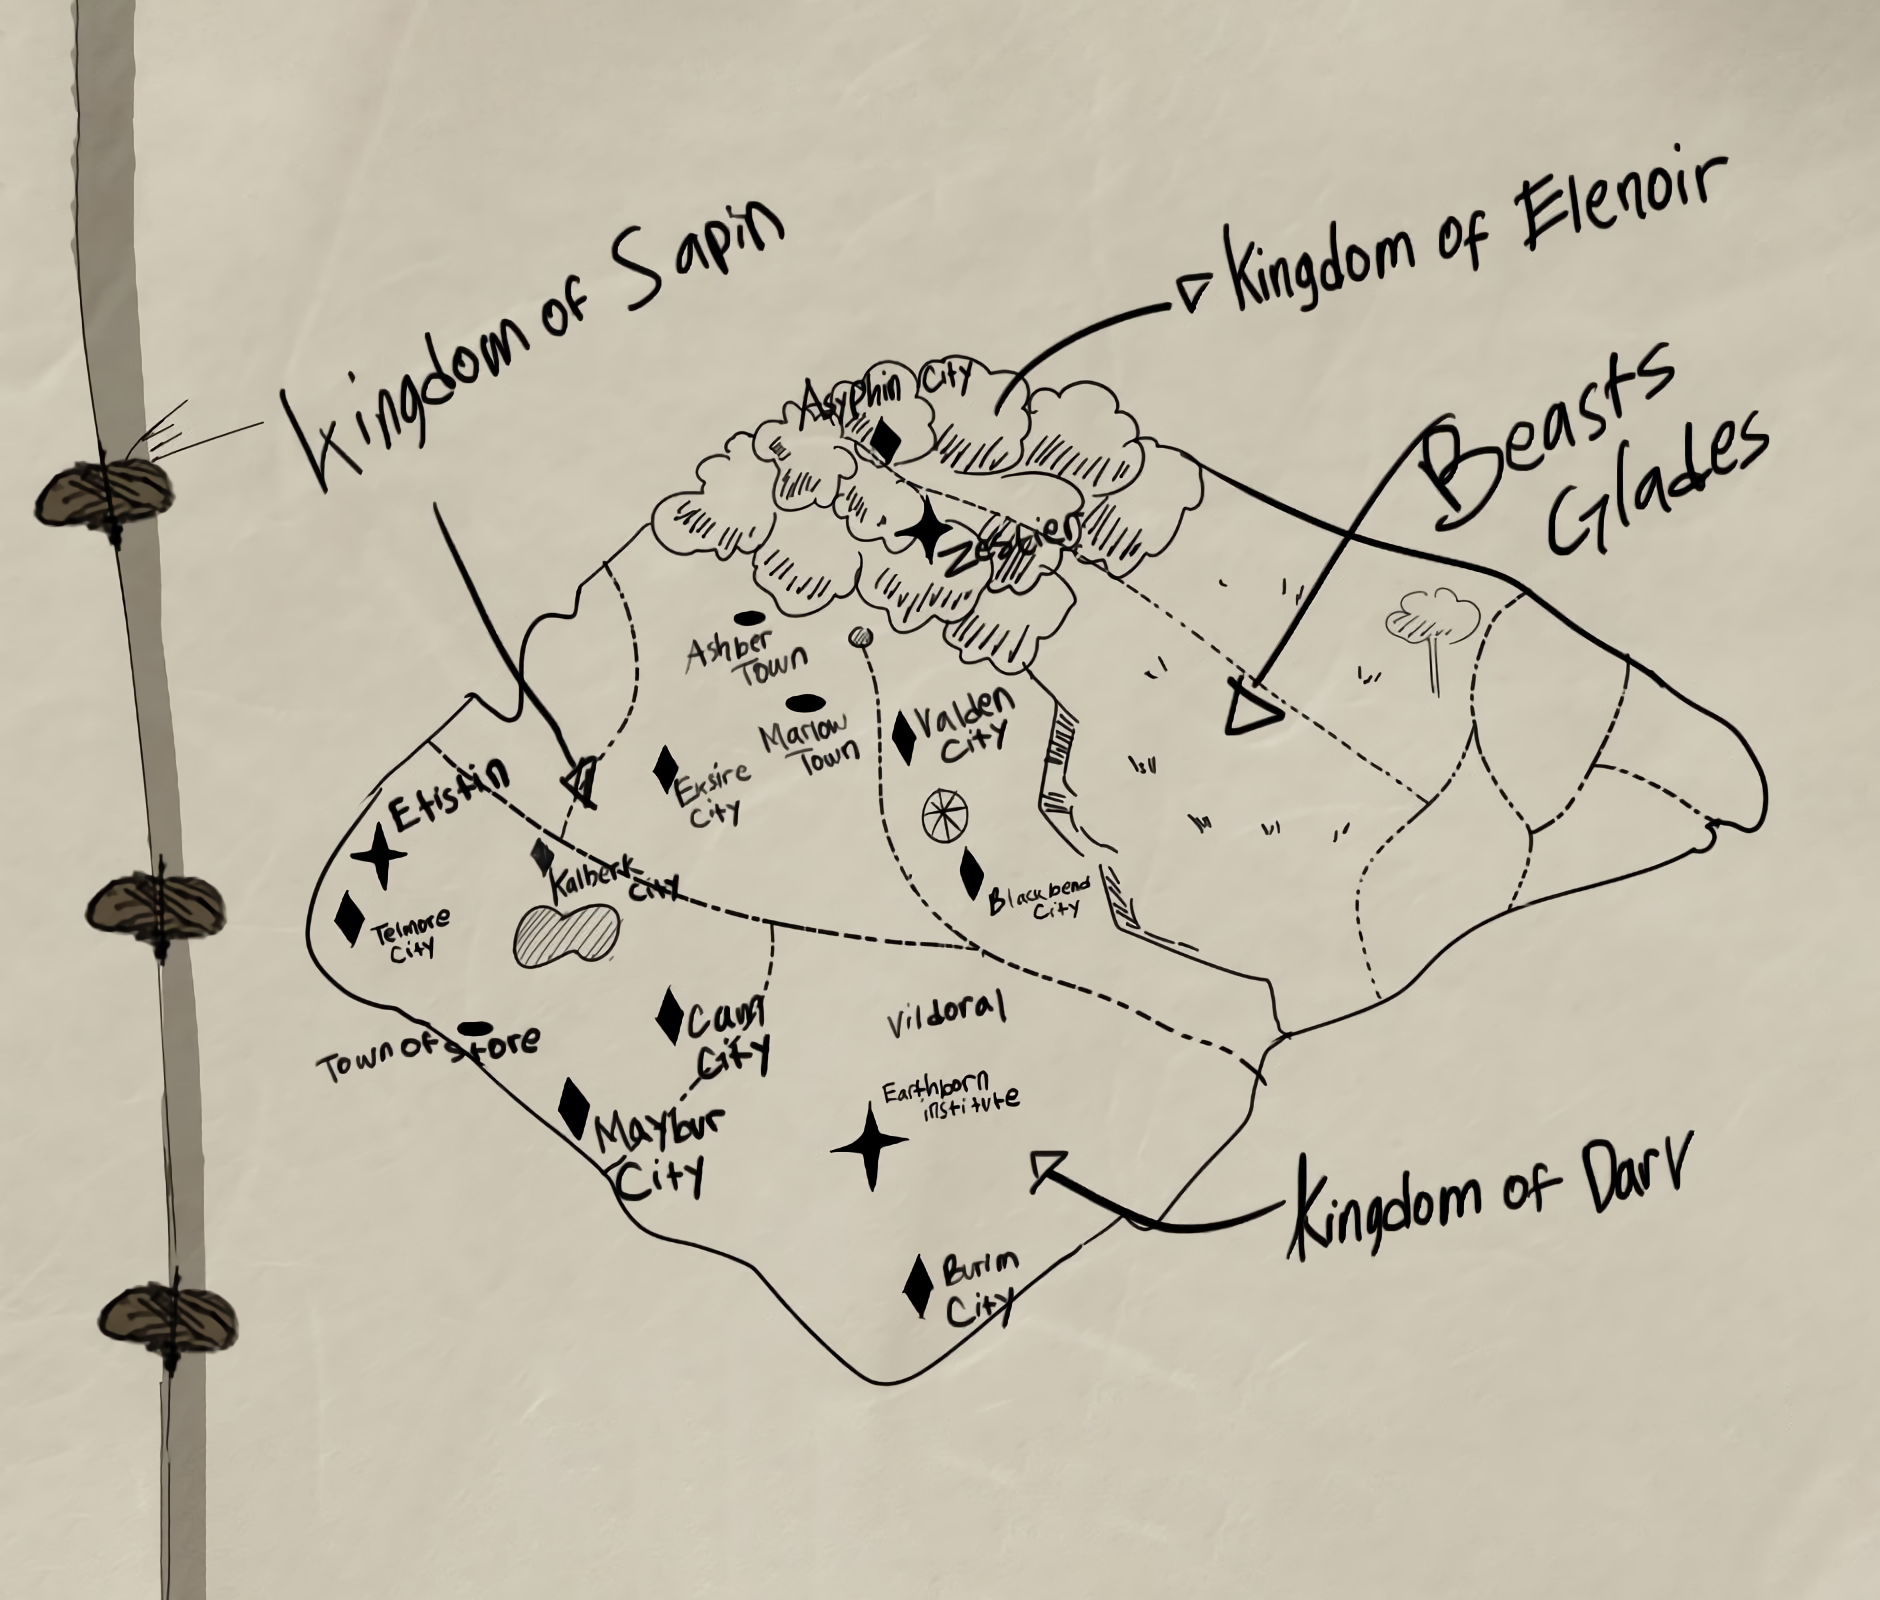 Kingdom of Sapin
Kingdom of Elenoir
Beasts
Glades
Asyphin City
Zestier
Ashber
Town
Marlow
Town
Valden
City
Eksire
City
Etistin
Kalberk
City
Blackbend
City
Telmore
City
Carn
City
Vildoral
Town of Store
Earthborn
institute
Maybur
City
Kingdom of Darv
Burim
City